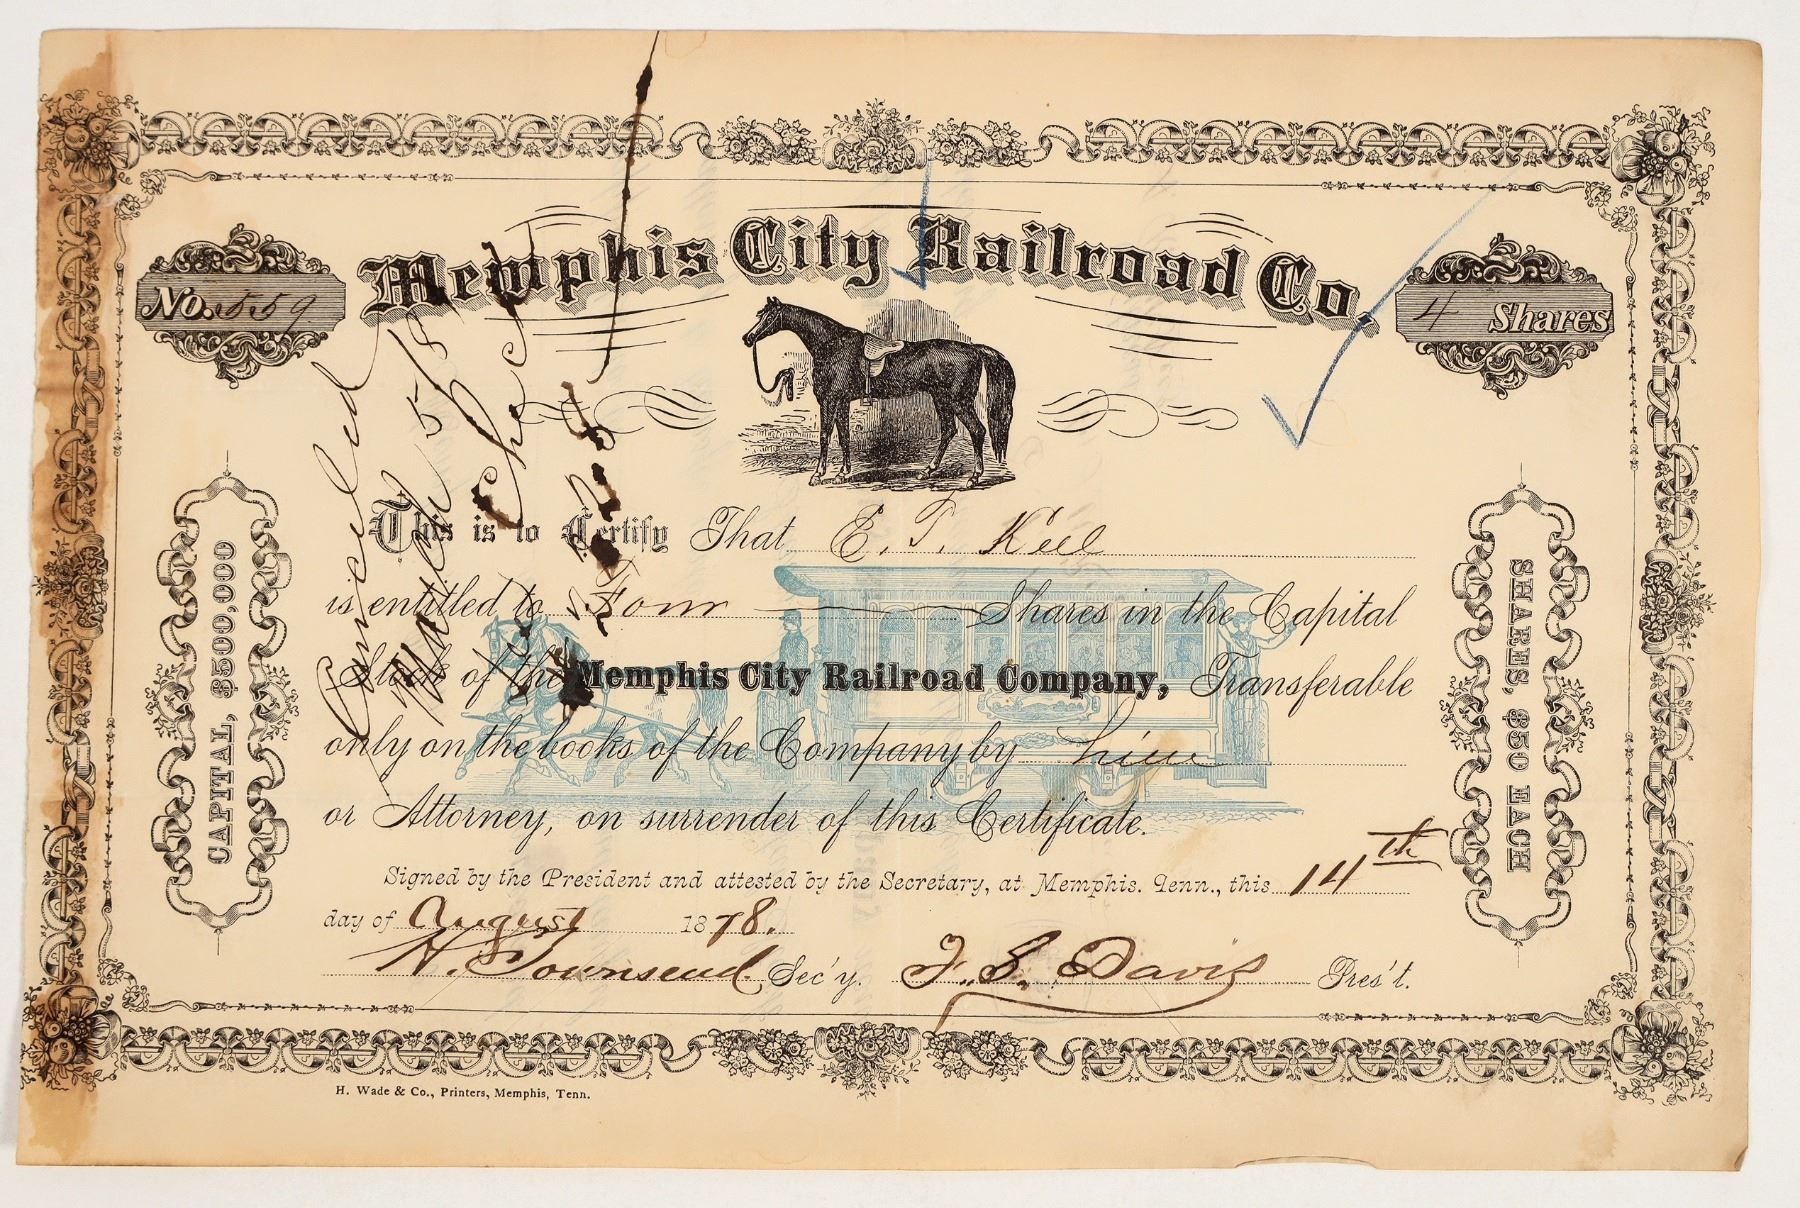 Memphis City Railroad Co.
No. 559
4 Shares
This is to Certify That E. T. Keel
is entitled to Four Shares in the Capital
Stock of the Memphis City Railroad Company, Transferable
only on the books of the Company by him
or Attorney, on surrender of this Certificate.
Signed by the President and attested by the Secretary, at Memphis. Tenn., this 14th
day of August 1878.
H. Townsend Sec'y. F. S. Davis Pres't.
CAPITAL, $500,000
SHARES, $50 EACH
Cancelled
H. Wade & Co., Printers, Memphis, Tenn.